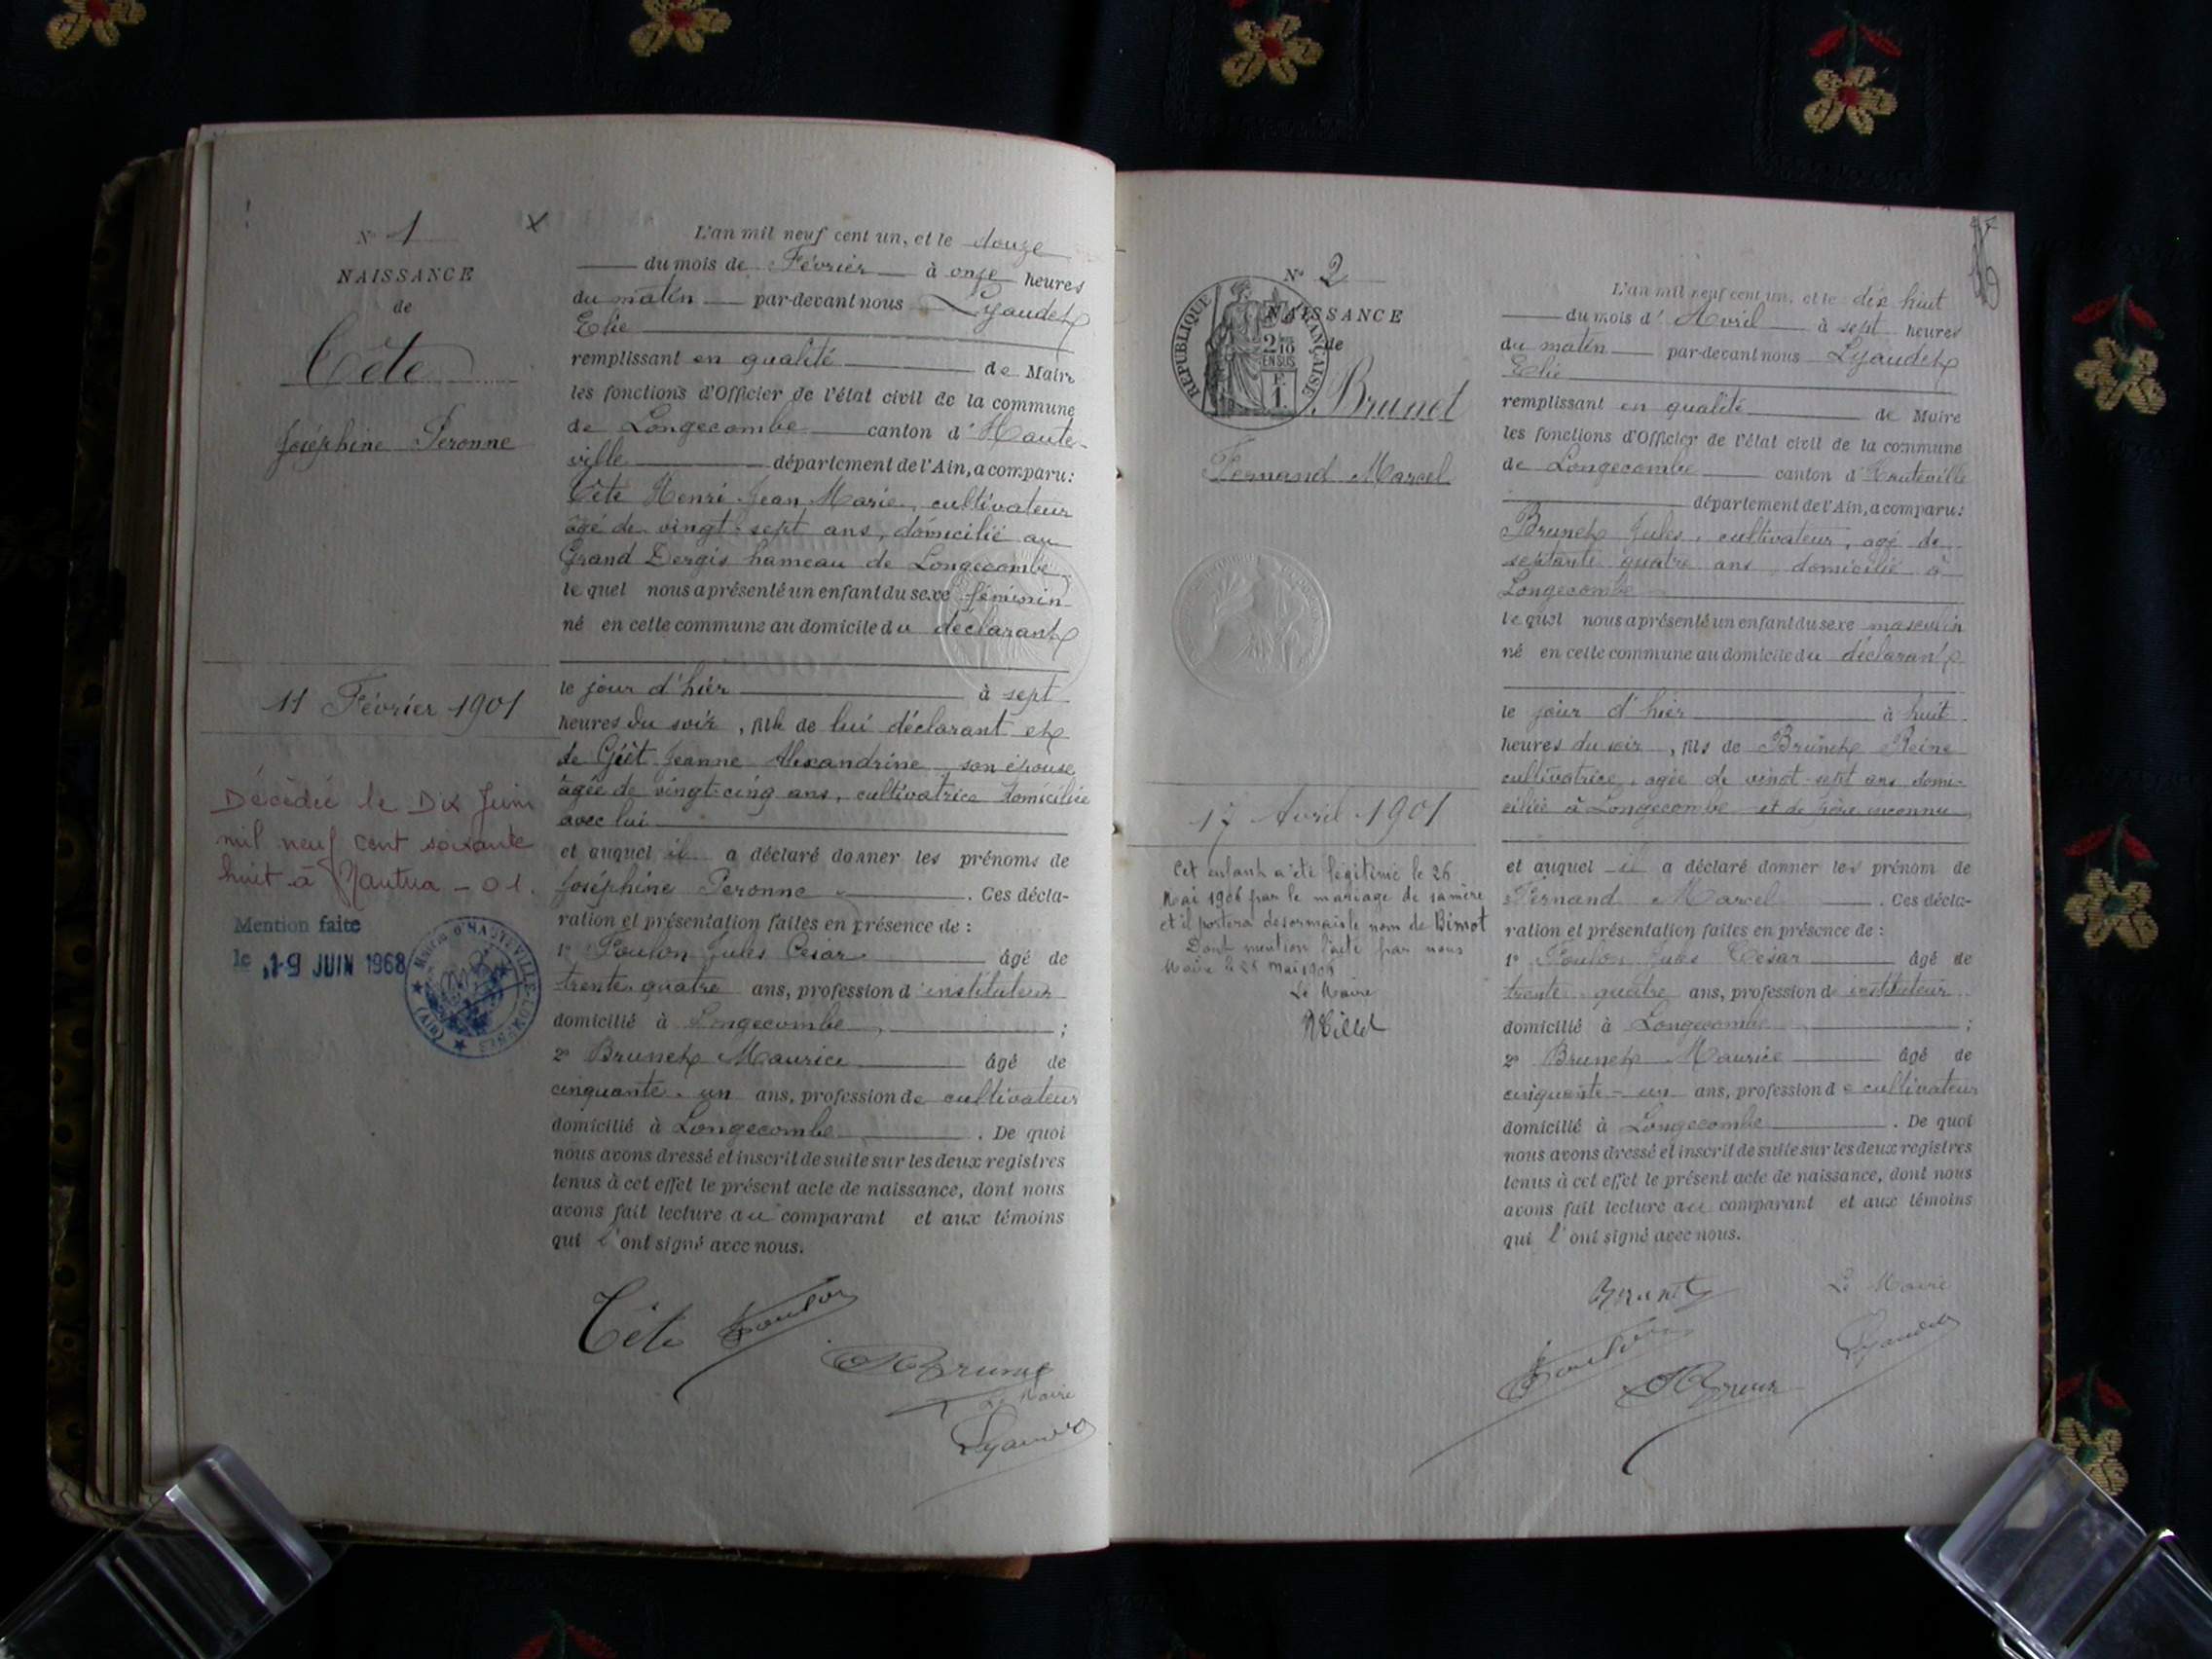 N° 1
NAISSANCE
de
Tête
Joséphine Peronne
11 Février 1901
Décédée le Dix Juin
mil neuf cent soixante
huit à Nantua - 01.
Mention faite
le 19 JUIN 1968
Mairie d'HAUTEVILLE-LOMPNES
(Ain)
L'an mil neuf cent un, et le douze
du mois de Février à onze heures
du matin par-devant nous Lyaudet
Elie
remplissant en qualité de Maire
les fonctions d'Officier de l'état civil de la commune
de Longecombe canton d'Haute-
ville département de l'Ain, a comparu:
Tête Henri Jean Marie, cultivateur
âgé de vingt-sept ans, domicilié au
Grand Dergis hameau de Longecombe
le quel nous a présenté un enfant du sexe féminin
né en cette commune au domicile du déclarant
le jour d'hier à sept
heures du soir, fille de lui déclarant et
de Jeanne Alexandrine son épouse
âgée de vingt-cinq ans, cultivatrice domiciliée
avec lui
et auquel il a déclaré donner les prénoms de
Joséphine Peronne. Ces décla-
ration et présentation faites en présence de:
1° Foulon Jules César âgé de
trente quatre ans, profession d'instituteur
domicilié à Longecombe;
2° Brunet Maurice âgé de
cinquante-un ans, profession de cultivateur
domicilié à Longecombe. De quoi
nous avons dressé et inscrit de suite sur les deux registres
tenus à cet effet le présent acte de naissance, dont nous
avons fait lecture au comparant et aux témoins
qui l'ont signé avec nous.
Tête Foulon
M Brunet
Le Maire
Lyaudet
N° 2
NAISSANCE
de
REPUBLIQUE FRANÇAISE
2/10
EN SUS
F.
1.
Brunet
Fernand Marcel
17 Avril 1901
Cet enfant a été légitimé le 26
Mai 1906 par le mariage de sa mère
et il portera désormais le nom de Binot
Dont mention faite par nous
Maire le 26 mai 1906
Le Maire
Millet
L'an mil neuf cent un, et le dix huit
du mois d'Avril à sept heures
du matin par-devant nous Lyaudet
Elie
remplissant en qualité de Maire
les fonctions d'Officier de l'état civil de la commune
de Longecombe canton d'Hauteville
département de l'Ain, a comparu:
Brunet Jules, cultivateur, agé de
septante quatre ans domicilié à
Longecombe
le quel nous a présenté un enfant du sexe masculin
né en cette commune au domicile du déclarant
le jour d'hier à huit
heures du soir, fils de Brunet Reine
cultivatrice, agée de vingt-sept ans domi-
ciliée à Longecombe et de père inconnu
et auquel il a déclaré donner les prénom de
Fernand Marcel. Ces décla-
ration et présentation faites en présence de:
1° Foulon Jules César âgé de
trente quatre ans, profession d'instituteur
domicilié à Longecombe;
2° Brunet Maurice âgé de
cinquante-un ans, profession de cultivateur
domicilié à Longecombe. De quoi
nous avons dressé et inscrit de suite sur les deux registres
tenus à cet effet le présent acte de naissance, dont nous
avons fait lecture au comparant et aux témoins
qui l'ont signé avec nous.
Brunet Le Maire
Foulon Lyaudet
M Brunet